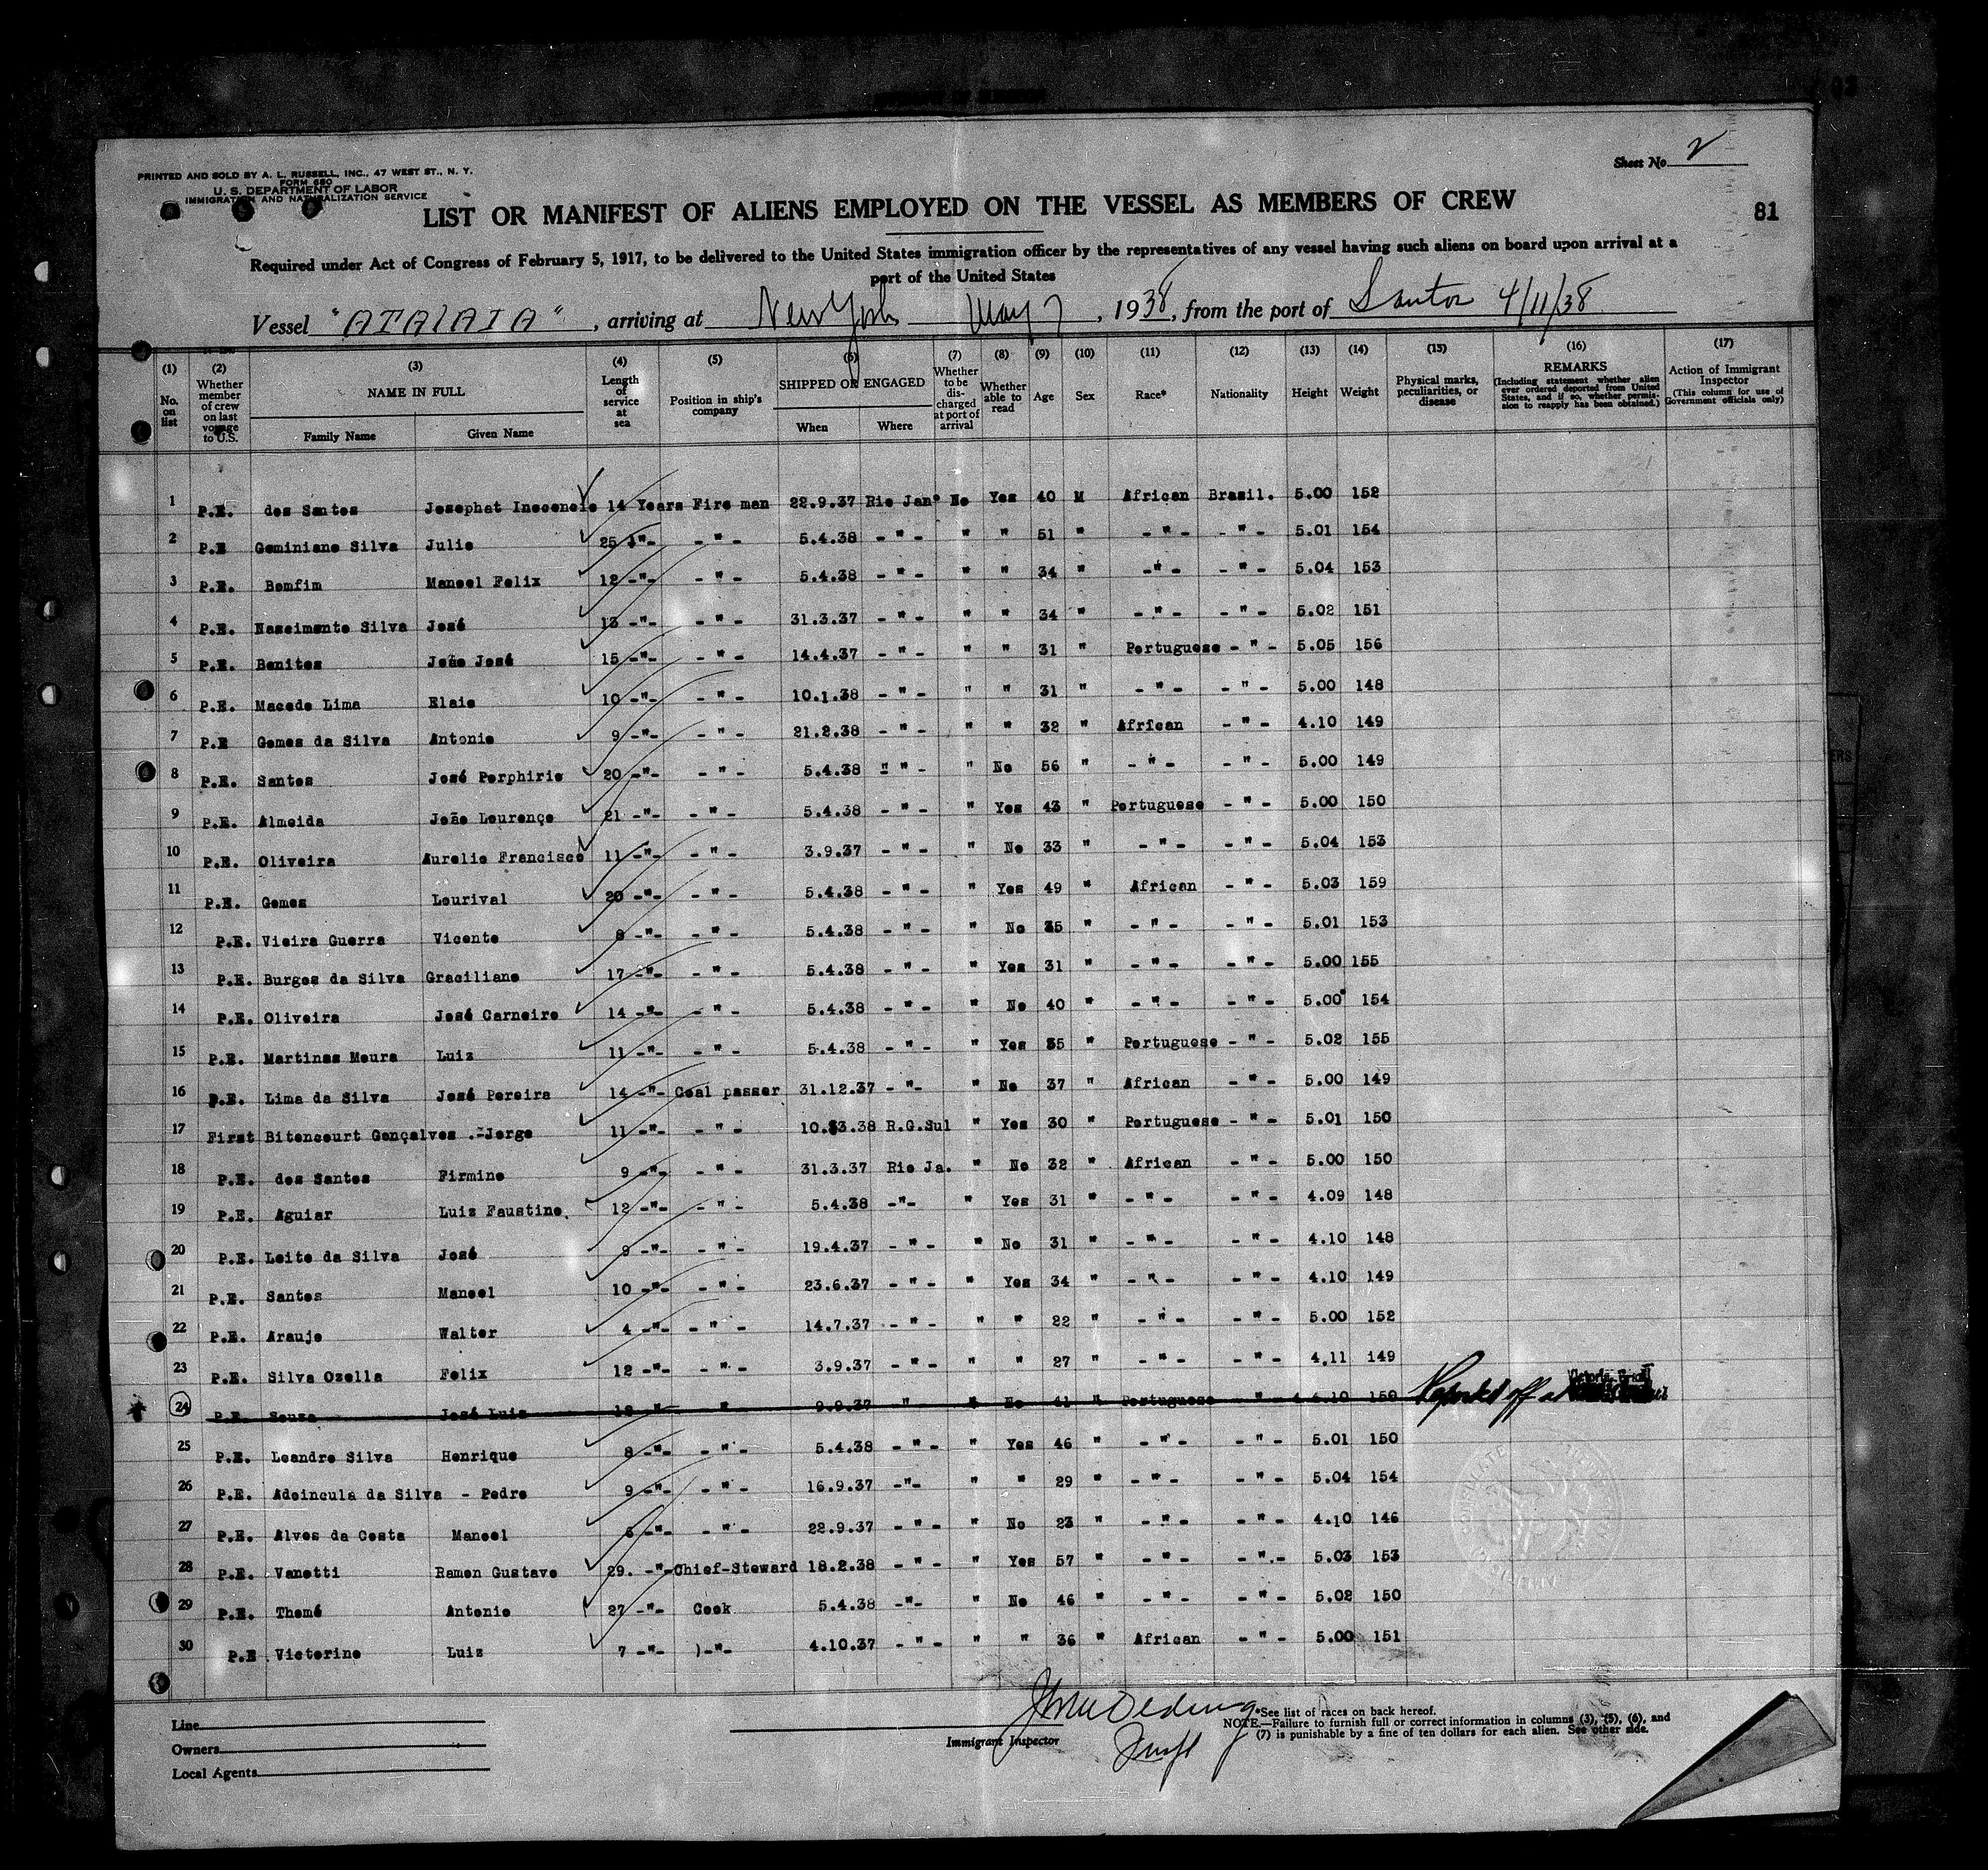 Sheet No. 2
PRINTED AND SOLD BY A. L. RUSSELL, INC., 47 WEST ST., N. Y.
FORM 680
U. S. DEPARTMENT OF LABOR
IMMIGRATION AND NATURALIZATION SERVICE
LIST OR MANIFEST OF ALIENS EMPLOYED ON THE VESSEL AS MEMBERS OF CREW
81
Required under Act of Congress of February 5, 1917, to be delivered to the United States immigration officer by the representatives of any vessel having such aliens on board upon arrival at a
port of the United States
Vessel "ATALAIA", arriving at New York May 7, 1938, from the port of Santos 4/11/38
(1) No. on list
(2) Whether member of crew on last voyage to U.S.
(3) NAME IN FULL Family Name Given Name
(4) Length of service at sea
(5) Position in ship's company
(6) SHIPPED OR ENGAGED When Where
(7) Whether to be discharged at port of arrival
(8) Whether able to read
(9) Age
(10) Sex
(11) Race*
(12) Nationality
(13) Height
(14) Weight
(15) Physical marks, peculiarities, or disease
(16) REMARKS (Including statement whether alien ever ordered deported from United States, and if so, whether permission to reapply has been obtained.)
(17) Action of Immigrant Inspector (This column for use of Government officials only)
1 P.E. dos Santos Josephat Inocencio 14 Years Fire man 22.9.37 Rio Janº No Yes 40 M African Brasil. 5.00 152
2 P.E Geminiano Silva Julio 25 -"- - " - 5.4.38 - " - " " 51 " - " - - " - 5.01 154
3 P.E. Bomfim Manoel Felix 12 -"- - " - 5.4.38 - " - " " 34 " -"- - " - 5.04 153
4 P.E. Nascimento Silva José 13 -"- - " - 31.3.37 - " - " " 34 " - " - - " - 5.02 151
5 P.E. Benites João José 15 -"- - " - 14.4.37 - " - " " 31 " Portuguese - " - 5.05 156
6 P.E. Macedo Lima Elaio 10 -"- - " - 10.1.38 - " - " " 31 " - " - - " - 5.00 148
7 P.E Gomes da Silva Antonio 9 -"- - " - 21.2.38 - " - " " 32 " African - " - 4.10 149
8 P.E. Santos José Porphirio 20 -"- - " - 5.4.38 " " - " No 56 " - " - - " - 5.00 149
9 P.E. Almeida João Lourenço 21 -"- - " - 5.4.38 - " - " Yes 43 " Portuguese - " - 5.00 150
10 P.E. Oliveira Aurelio Francisco 11 -"- - " - 3.9.37 - " - " No 33 " - " - - " - 5.04 153
11 P.E. Gomes Lourival 20 -"- - " - 5.4.38 - " - " Yes 49 " African - " - 5.03 159
12 P.E. Vieira Guerra Vicente 8 -"- - " - 5.4.38 - " - " No 35 " - " - - " - 5.01 153
13 P.E. Burges da Silva Graciliano 17 -"- - " - 5.4.38 - " - " Yes 31 " - " - - " - 5.00 155
14 P.E. Oliveira José Carneiro 14 -"- - " - 5.4.38 - " - " No 40 " - " - - " - 5.00 154
15 P.E. Martinas Moura Luiz 11 -"- - " - 5.4.38 - " - " Yes 35 " Portuguese - " - 5.02 155
16 P.E. Lima da Silva José Pereira 14 -"- Coal passer 31.12.37 - "- " No 37 " African - " - 5.00 149
17 First Bitencourt Gonçalves .-Jorge 11 -"- - " - 10.3.38 R.G.Sul " Yes 30 " Portuguese - " - 5.01 150
18 P.E. dos Santos Firmino 9 -"- - " - 31.3.37 Rio Ja. " No 32 " African - " - 5.00 150
19 P.E. Aguiar Luiz Faustino. 12 -"- - " - 5.4.38 -"- " Yes 31 " - " - - " - 4.09 148
20 P.E. Leite da Silva José 9 -"- - " - 19.4.37 - " - " No 31 " - " - - " - 4.10 148
21 P.E. Santos Manoel 10 -"- - " - 23.6.37 - " - " Yes 34 " - " - - " - 4.10 149
22 P.E. Araujo Walter 4 -"- - " - 14.7.37 - " - " " 22 " - " - - " - 5.00 152
23 P.E. Silva Ozella Felix 12 -"- - " - 3.9.37 - " - " " 27 " - " - - " - 4.11 149
24 P.E. Souza José Luiz 18 " " 9.9.37 " " No 41 " Portuguese - " - 4.10 150 off at Victoria, Brazil
25 P.E. Leandro Silva Henrique 8 -"- - " - 5.4.38 - " - " Yes 46 " - " - - " - 5.01 150
26 P.E. Adoincula da Silva - Pedro 9 -"- - " - 16.9.37 -"- " " 29 " - " - - " - 5.04 154
27 P.E. Alves da Costa Manoel 6 -"- - " - 22.9.37 - " - " No 23 " - " - - " - 4.10 146
28 P.E. Vanotti Ramon Gustavo 29. -"- Chief-Steward 18.2.38 - " - " Yes 57 " - " - - ".- 5.03 153
29 P.E. Thomé Antonio 27 -"- Cook 5.4.38 -"- " No 46 " - " - - " - 5.02 150
30 P.E Victorino Luiz 7 -"- )-"- 4.10.37 - " - " " 36 " African - " - 5.00 151
Line
Owners
Local Agents
Immigrant Inspector
*See list of races on back hereof.
NOTE.—Failure to furnish full or correct information in columns (3), (5), (6), and
(7) is punishable by a fine of ten dollars for each alien. See other side.